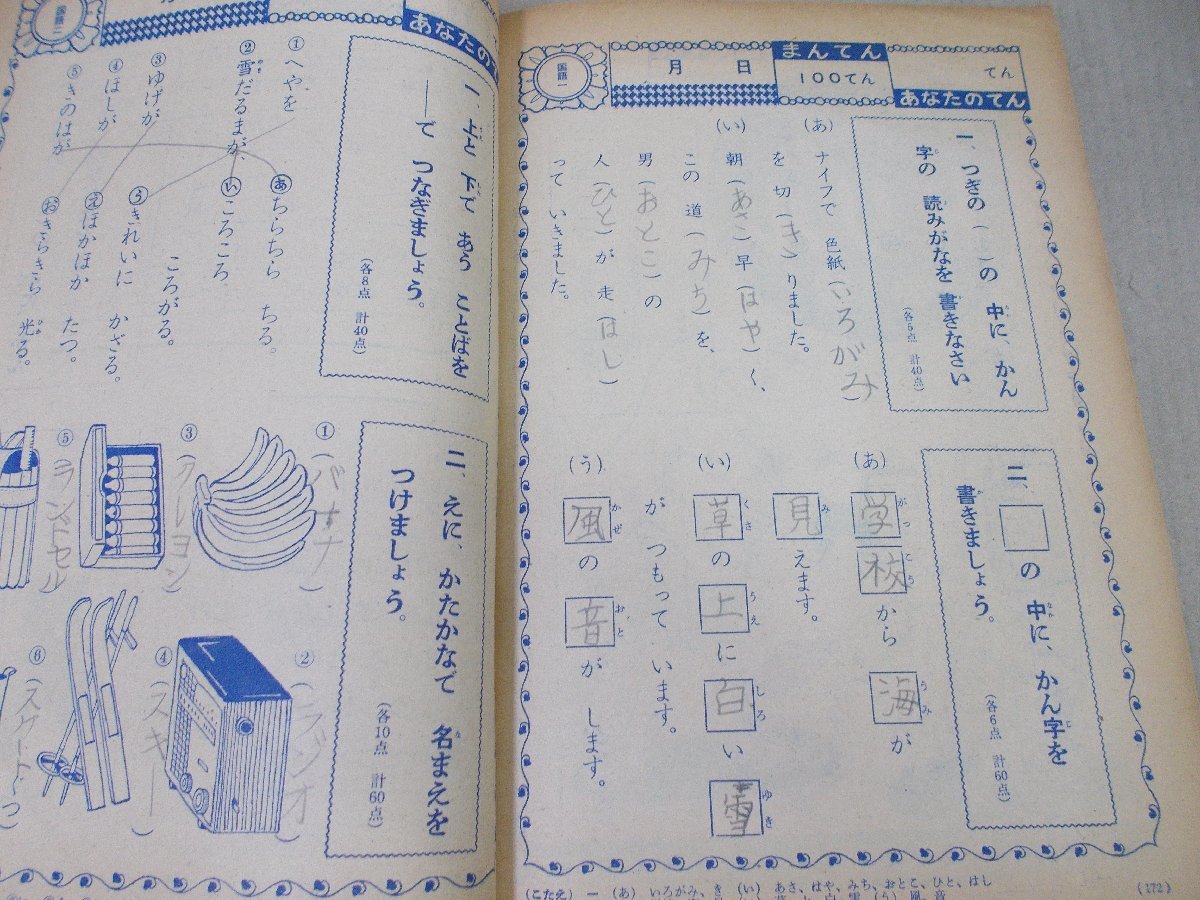 国語一
月　日
まんてん
100てん
てん
あなたのてん
一、つぎの（　）の　中に、かん
字の　読みがなを　書きなさい
（各5点　計40点）
（あ）　ナイフで　色紙（いろがみ）
を　切（き）りました。
（い）　朝（あさ）早（はや）く、
この　道（みち）を、
男（おとこ）の
人（ひと）が　走（はし）
って　いきました。
二、□の　中に、かん字を
書きましょう。
（各6点　計60点）
（あ）　学校から　海が
見えます。
（い）　草の　上に　白い　雪
が　つもって　います。
（う）　風の　音が　します。
（こたえ）　一　（あ）　いろがみ、き　（い）　あさ、はや、みち、おとこ、ひと、はし
（172）
国語二
あなたの
一、上と　下で　あう　ことばを
──で　つなぎましょう。
（各8点　計40点）
①へやを
②雪だるまが、
③ゆげが
④ほしが
⑤きのはが
あちらちら　ちる。
いころころ　ころがる。
うきれいに　かざる。
えほかほか　たつ。
おきらきら　光る。
二、えに、かたかなで　名まえを
つけましょう。
（各10点　計60点）
①（バナナ）
②（ラジオ）
③（クレヨン）
④（スキー）
⑤（ランドセル）
⑥（スケート